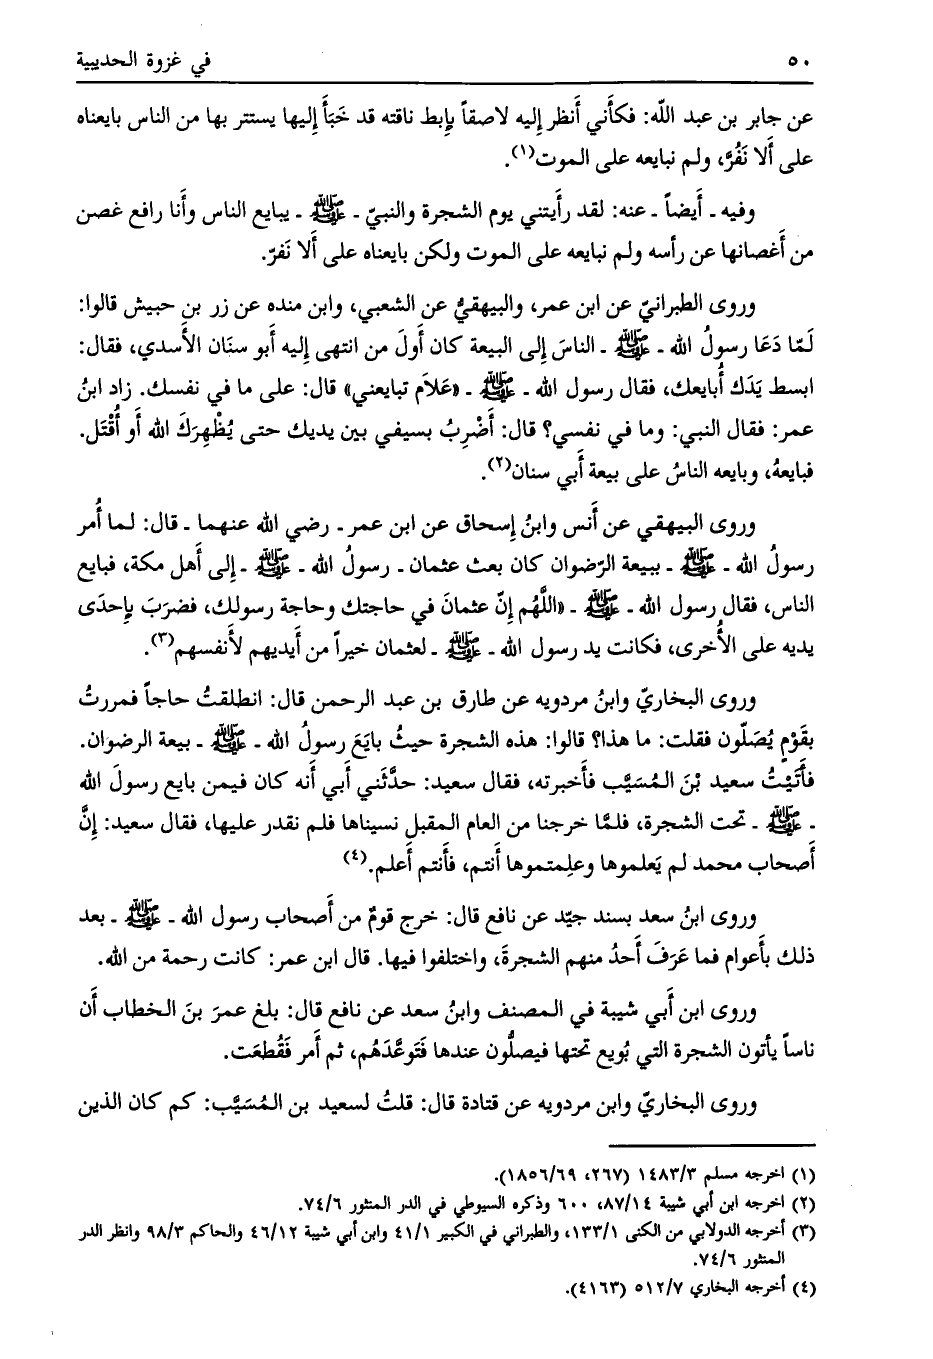 ٥٠ في غزوة الحديبية
عن جابر بن عبد الله: فكأَني أَنظر إليه لاصقاً بإبط ناقته قد خَبَأَ إليها يستتر بها من الناس بايعناه
على أَلا نَفُرَّ، ولم نبايعه على الموت(١).
وفيه ـ أَيضاً ـ عنه: لقد رأَيتني يوم الشجرة والنبيّ ـ ﷺ ـ يبايع الناس وأَنا رافع غصن
من أَغصانها عن رأسه ولم نبايعه على الموت ولكن بايعناه على أَلا نَفرّ.
وروى الطبرانيّ عن ابن عمر، والبيهقيُّ عن الشعبي، وابن منده عن زر بن حبيش قالوا:
لَمّا دَعَا رسولُ الله ـ ﷺ ـ الناسَ إلى البيعة كان أَولَ من انتهى إليه أَبو سنَان الأَسدي، فقال:
ابسط يَدَك أُبايعك، فقال رسول الله ـ ﷺ ـ «عَلاَم تبايعني» قال: على ما في نفسك. زاد ابنُ
عمر: فقال النبي: وما في نفسي؟ قال: أَضْرِبُ بسيفي بين يديك حتى يُظْهِرَكَ الله أَو أُقْتَل.
فبايعهُ، وبايعه الناسُ على بيعة أَبي سنان(٢).
وروى البيهقي عن أَنس وابنُ إسحاق عن ابن عمر ـ رضي الله عنهما ـ قال: لما أُمر
رسولُ الله ـ ﷺ ـ ببيعة الرّضوان كان بعث عثمان ـ رسولُ الله ـ ﷺ ـ إلى أَهل مكة، فبايع
الناس، فقال رسول الله ـ ﷺ ـ «اللَّهُم إنّ عثمانَ في حاجتك وحاجة رسولك، فضرَبَ بإحدَى
يديه على الأُخرى، فكانت يد رسول الله ـ ﷺ ـ لعثمان خيراً من أَيديهم لأَنفسهم(٣).
وروى البخاريّ وابنُ مردويه عن طارق بن عبد الرحمن قال: انطلقتُ حاجاً فمررتُ
بقَوْمٍ يُصَلّون فقلت: ما هذا؟ قالوا: هذه الشجرة حيثُ بايَعَ رسولُ الله ـ ﷺ ـ بيعة الرضوان.
فأَتَيْتُ سعيد بْنَ المُسَيَّب فأَخبرته، فقال سعيد: حدَّثَني أَبي أَنه كان فيمن بايع رسولَ الله
ـ ﷺ ـ تحت الشجرة، فلمَّا خرجنا من العام المقبل نسيناها فلم نقدر عليها، فقال سعيد: إنَّ
أَصحاب محمد لم يَعلموها وعلِمتموها أَنتم، فأَنتم أَعلم.(٤)
وروى ابنُ سعد بسند جيّد عن نافع قال: خرج قومٌ من أَصحاب رسول الله ـ ﷺ ـ بعد
ذلك بأَعوام فما عَرَفَ أَحدُ منهم الشجرةَ، واختلفوا فيها. قال ابن عمر: كانت رحمة من الله.
وروى ابن أَبي شيبة في المصنف وابنُ سعد عن نافع قال: بلغ عمرَ بنَ الخطاب أَن
ناساً يأتون الشجرة التي بُويع تحتها فيصلُّون عندها فَتَوعَّدَهُم، ثم أَمر فَقُطعَت.
وروى البخاريّ وابن مردويه عن قتادة قال: قلتُ لسعيد بن المُسَيَّب: كم كان الذين
(١) اخرجه مسلم ١٤٨٣/٣ (٢٦٧، ١٨٥٦/٦٩).
(٢) اخرجه ابن أبي شيبة ٨٧/١٤، ٦٠٠ وذكره السيوطي في الدر المنثور ٧٤/٦.
(٣) أخرجه الدولابي من الكنى ١٣٣/١، والطبراني في الكبير ٤١/١ وابن أبي شيبة ٤٦/١٢ والحاكم ٩٨/٣ وانظر الدر
المنثور ٧٤/٦.
(٤) أخرجه البخاري ٥١٢/٧ (٤١٦٣).